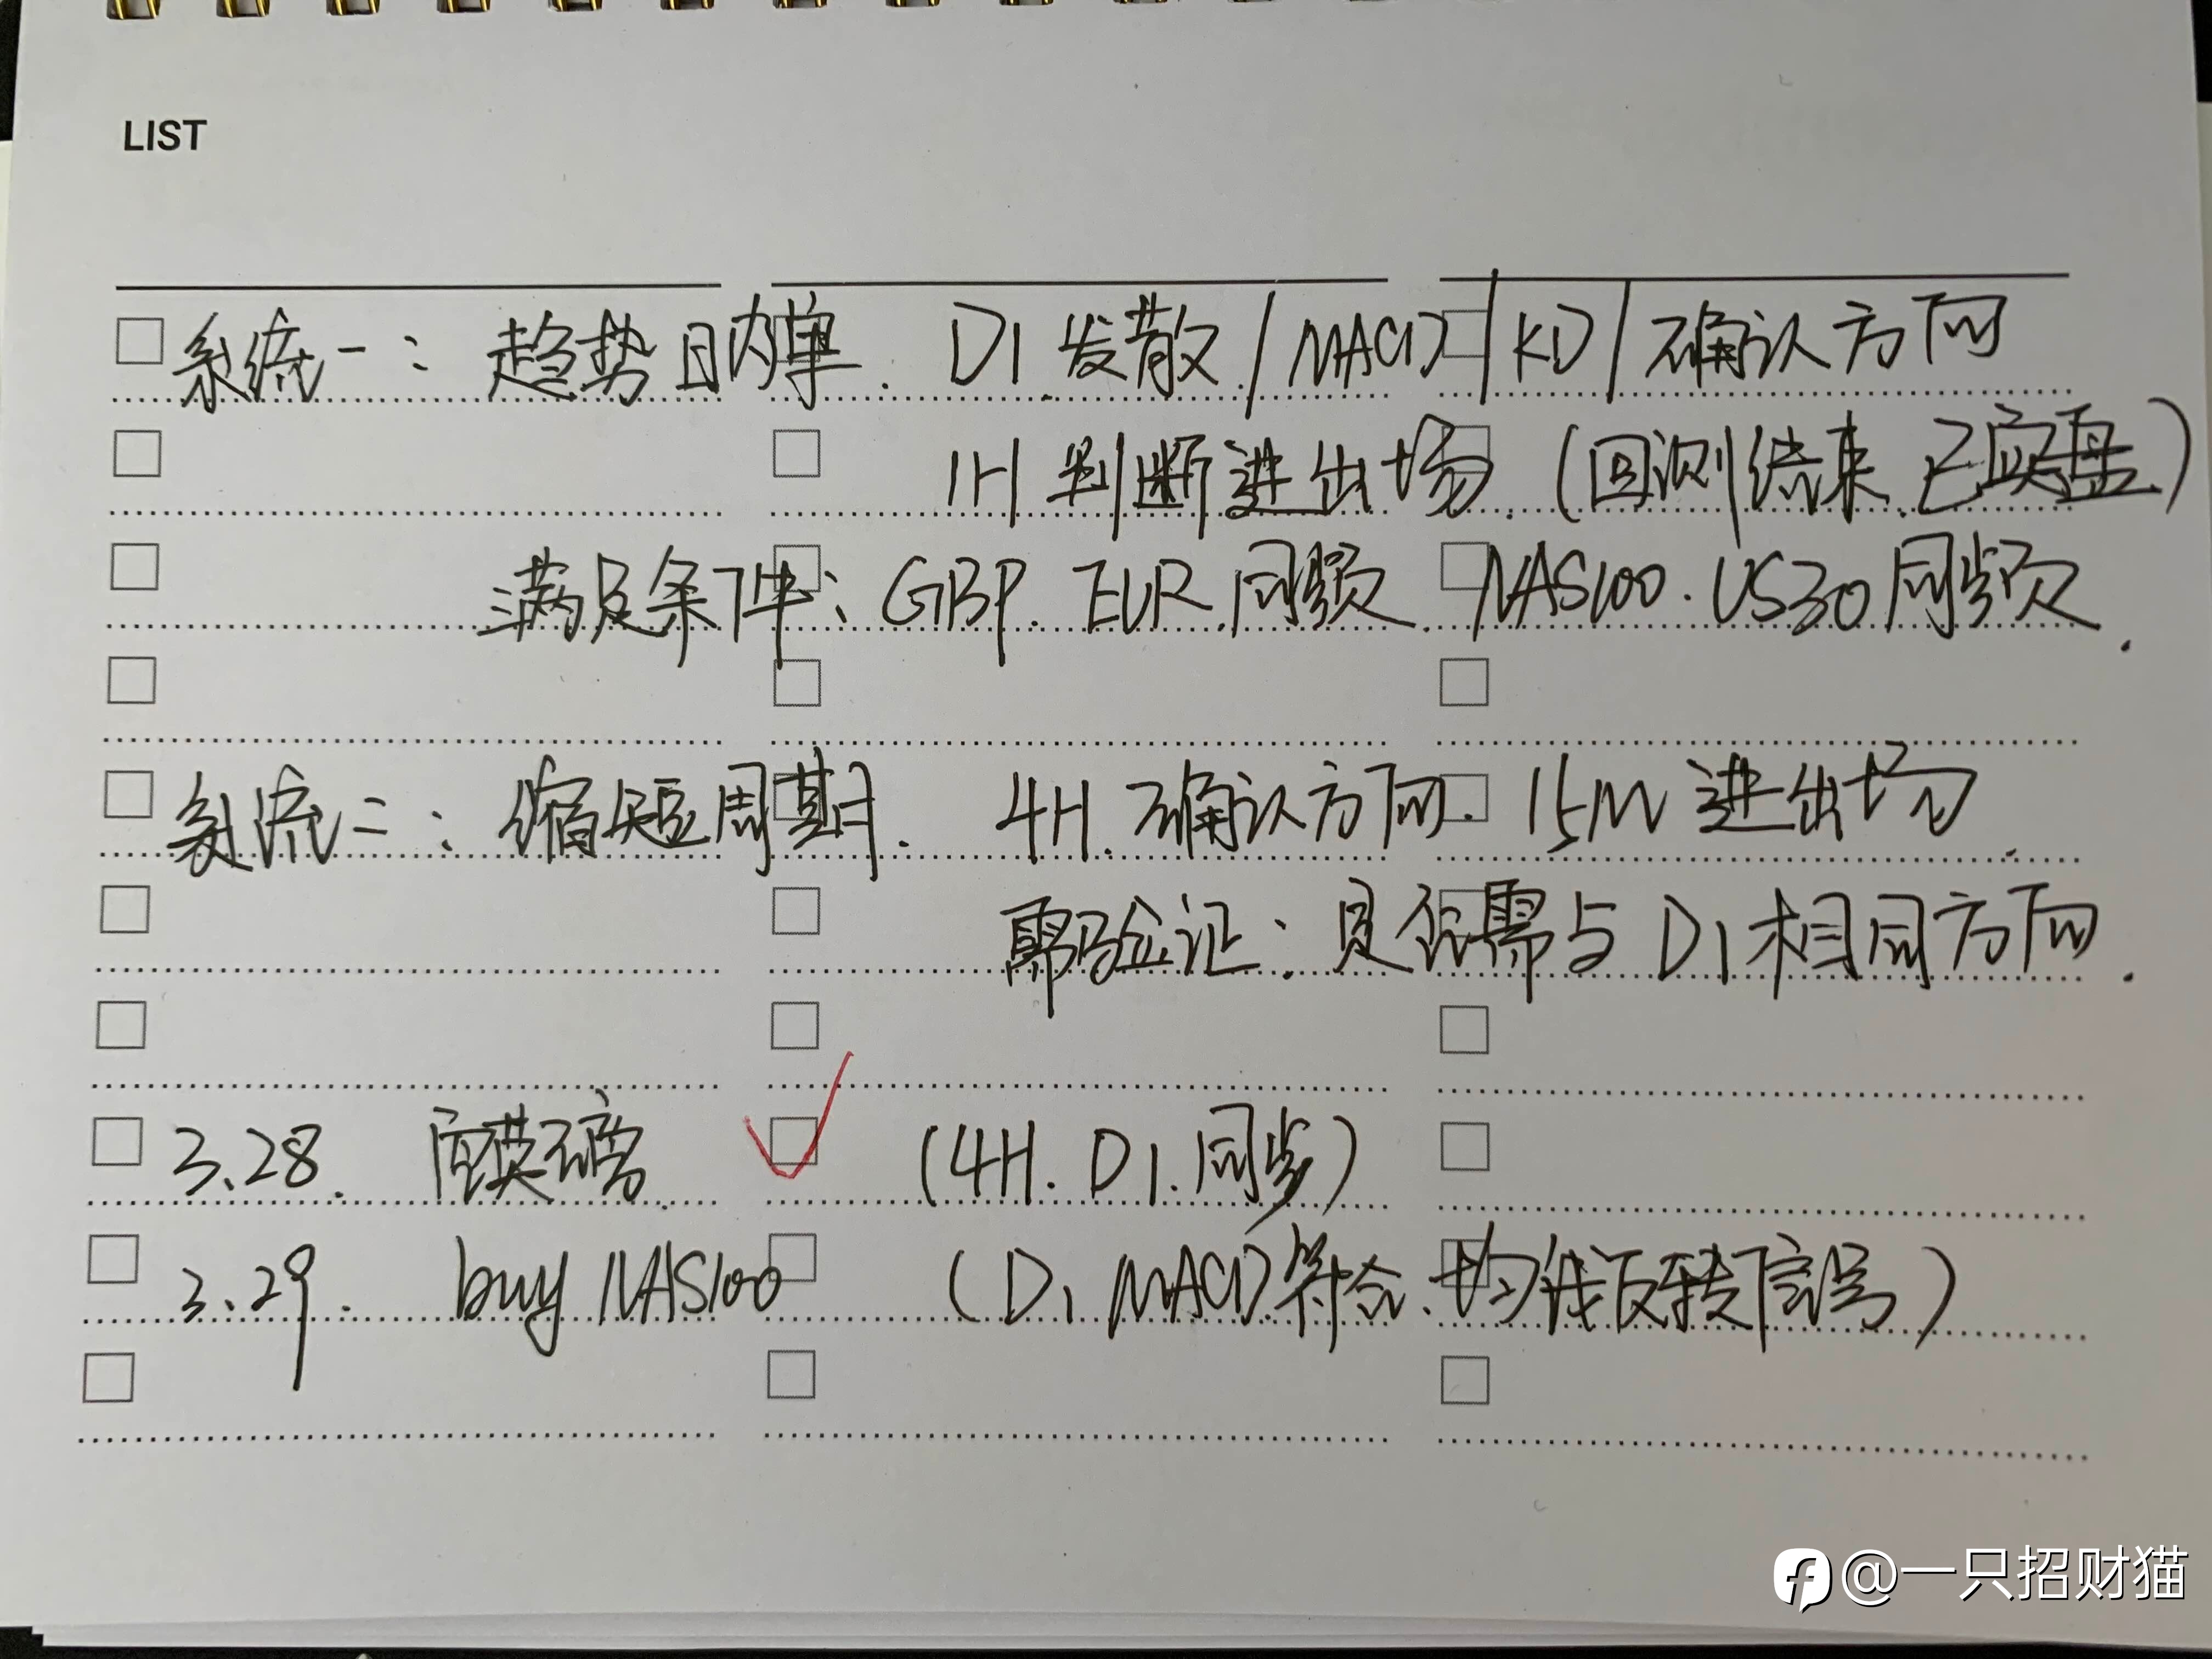 LIST
系统一：趋势日内单. D1.发散./MACD/KD/确认方向
1H判断进出场.(回测结束.已实盘)
满足条件：GBP.EUR.同频.NAS100.US30同频.
系统二：缩短周期. 4H.确认方向. 15M进出场.
需验证：是否需与D1相同方向.
3.28. 空英磅. (4H.D1.同步)
3.29. buy NAS100 (D1 MACD符合.均线反转信号)
@一只招财猫